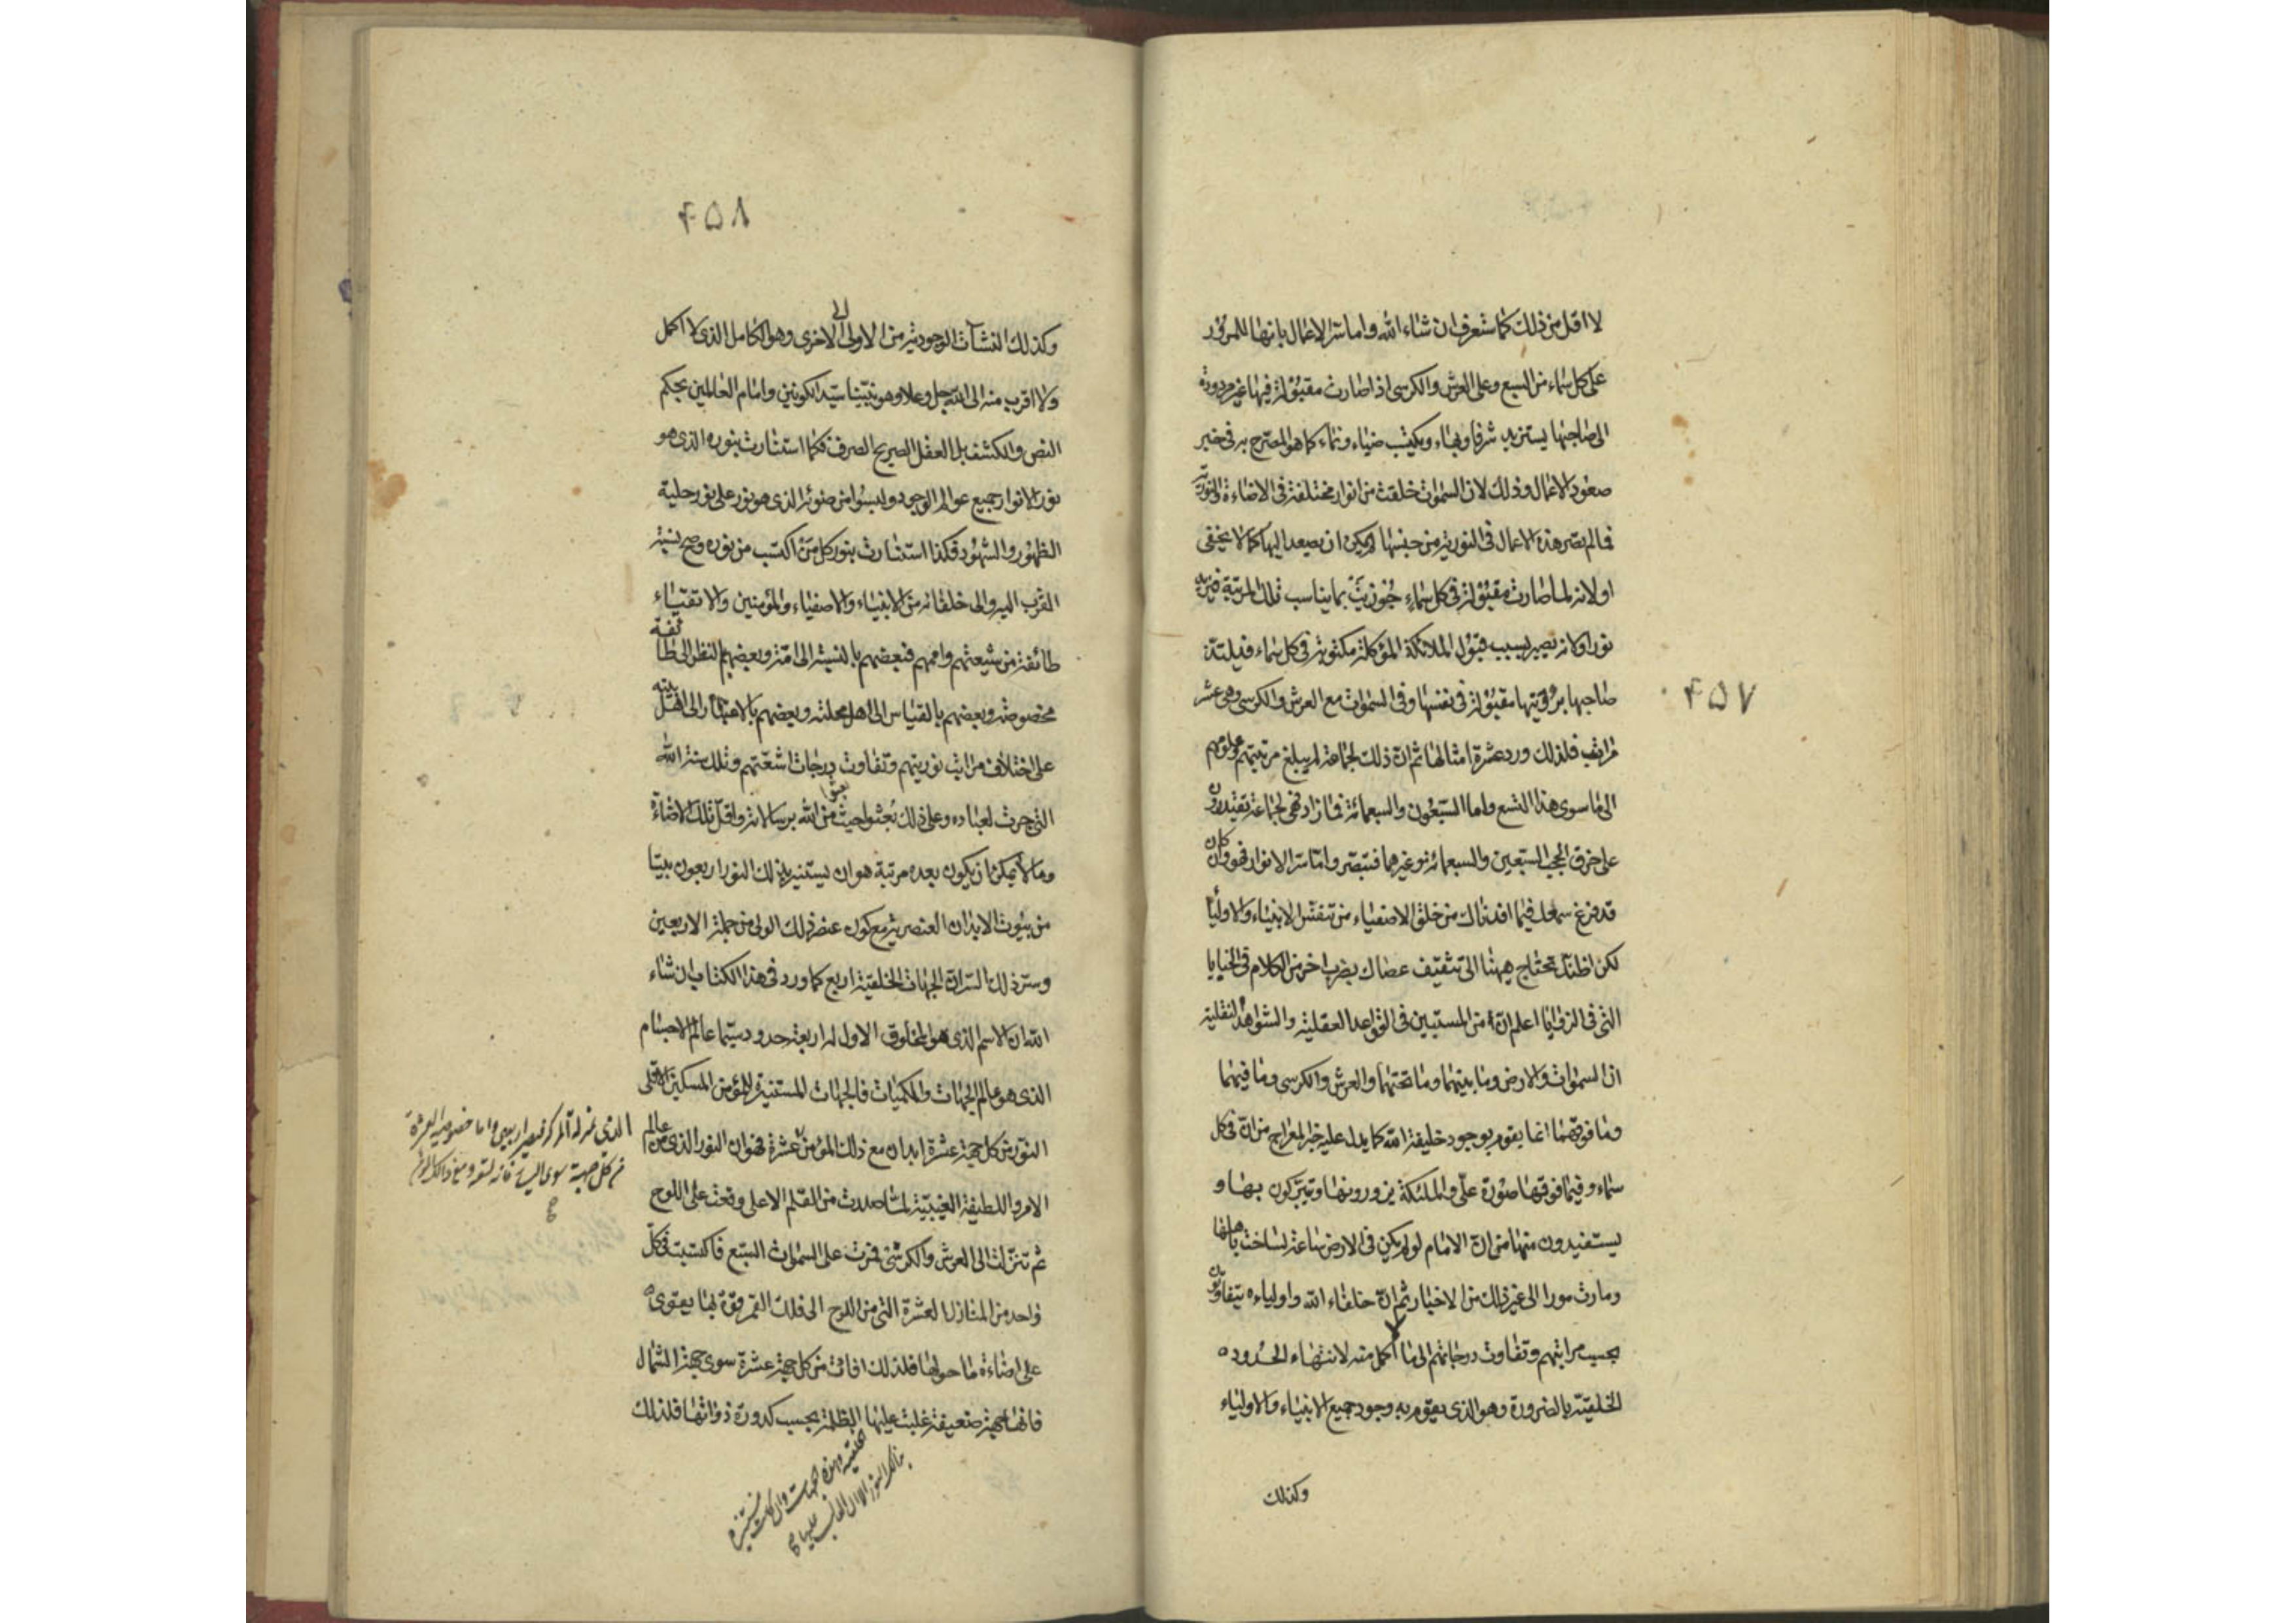 لا اقل من ذلك كما ستعرف ان شاء الله واما سر الاعمال بانها للمرور
على كل سماء من السبع وعلى العرش والكرسي اذا صارت مقبولة فيها غير مردودة
الى صاحبها يستزيد شرفا وبهاء ويكتسب ضياء ونماء كما هو المصرح به في خبر
صعود الاعمال وذلك لان السموات خلقت من انوار مختلفة في الاضاءة والنورية
فما لم تصر هذه الاعمال في النورية من جنسها لم يمكن ان يصعد اليها كما لا يخفى
او لانه لما صارت مقبولة في كل سماء جوزيت بما يناسب تلك المرتبة فيزيد
نورا او لانه يصير بسبب قبول الملائكة الموكلة مكتوبة في كل سماء فيلتذ
صاحبها برؤيتها مقبولة في نفسها وفي السموات مع العرش والكرسي وهي عشر
مراتب فلذلك ورد عشرة امثالها ثم ان ذلك لجماعة لم يبلغ مرتبتهم وعلومهم
الى ما سوى هذا التسع واما السبعون والسبعمائة فما زاد فهي لجماعة يقتدرون
على خرق الحجب السبعين والسبعمائة وغيرهما فتبصر واما سر الانوار فهو وان كان
قد قرع سمعك فيما افدناك من خلق الاصفياء من تنفس الانبياء والاولياء
لكن اظنك تحتاج ههنا الى تثقيف عصاك بضرب اخر من الكلام في الخبايا
التي في الزوايا اعلم ان من المستبين في القواعد العقلية والشواهد النقلية
ان السموات والارض وما بينهما وما تحتهما والعرش والكرسي وما فيهما
وما فوقهما انما يقوم بوجود خليفة الله كما يدل عليه خبر المعراج من ان في كل
سماء وفيما فوقها صورة علي والملئكة يزورونها ويتبركون بها و
يستفيدون منها من ان الامام لو لم يكن في الارض ساعة لساخت باهلها
ومارت مورا الى غير ذلك من الاخبار ثم ان خلفاء الله واولياءه يتفاوتون
بحسب مراتبهم وتفاوت درجاتهم الى ما لا اكمل منه لانتهاء الحدود
الخلقية بالضرورة وهو الذي يقوم به وجود جميع الانبياء والاولياء
وكذلك
۴۵۷
۴۵۸
وكذلك النشآت الوجودية من الاولى الى الاخرى وهو الكامل الذي لا اكمل
ولا اقرب منه الى الله جل وعلا وهو نبينا سيد الكونين وامام العالمين بحكم
النص والكشف بل العقل الصريح الصرف فكما استنارت بنوره الذي هو
نور الانوار جميع عوالم الوجود ولبسوا من ضوئه الذي هو نور على نور حلية
الظهور والشهود فكذا استنارت بنور كل من اكتسب من نوره وصح نسبة
القرب اليه والى خلفائه من الانبياء والاصفياء والمؤمنين والاتقياء
طائفة من شيعتهم واممهم فبعضهم بالنسبة الى امة وبعضهم بالنظر الى طائفة
مخصوصة وبعضهم بالقياس الى اهل محلته وبعضهم بالاعتبار الى اهل بيته
على اختلاف مراتب نوريتهم وتفاوت درجات اشعتهم وتلك سنة الله
التي جرت لعباده وعلى ذلك بعثوا حيث بعثوا من الله برسالاته واقل تلك الاضاءة
وما لا يمكن ان يكون بعده مرتبة هو ان يستنير بذلك النور اربعون بيتا
من بيوت الابدان العنصرية مع كون عنصر ذلك الولي من جملة الاربعين
وسر ذلك السر ان الجهات الخلقية اربع كما ورد في هذا الكتاب ان شاء
الله ان الاسم الذي هو المخلوق الاول له اربعة حدود سيما عالم الاجسام
الذي هو عالم الجهات والكميات فالجهات المستنيرة للمؤمن المسكين الاقلى
النور من كل جهة عشرة ابدان مع ذلك المؤمن عشرة فهو ان النور الذي من عالم
الامر واللطيفة الغيبية لما صدرت من القلم الاعلى وقعت على اللوح
ثم تنزلت الى العرش والكرسي فمرت على السموات السبع فاكتسبت في كل
واحد من المنازل العشرة التي من اللوح الى فلك القمر قوة بها يقوى
على اضاءة ما حولها فلذلك افاضت من كل جهة عشرة سوى جهة الشمال
فانها جهة ضعيفة غلبت عليها الظلمة بحسب كدورة ذواتها فلذلك